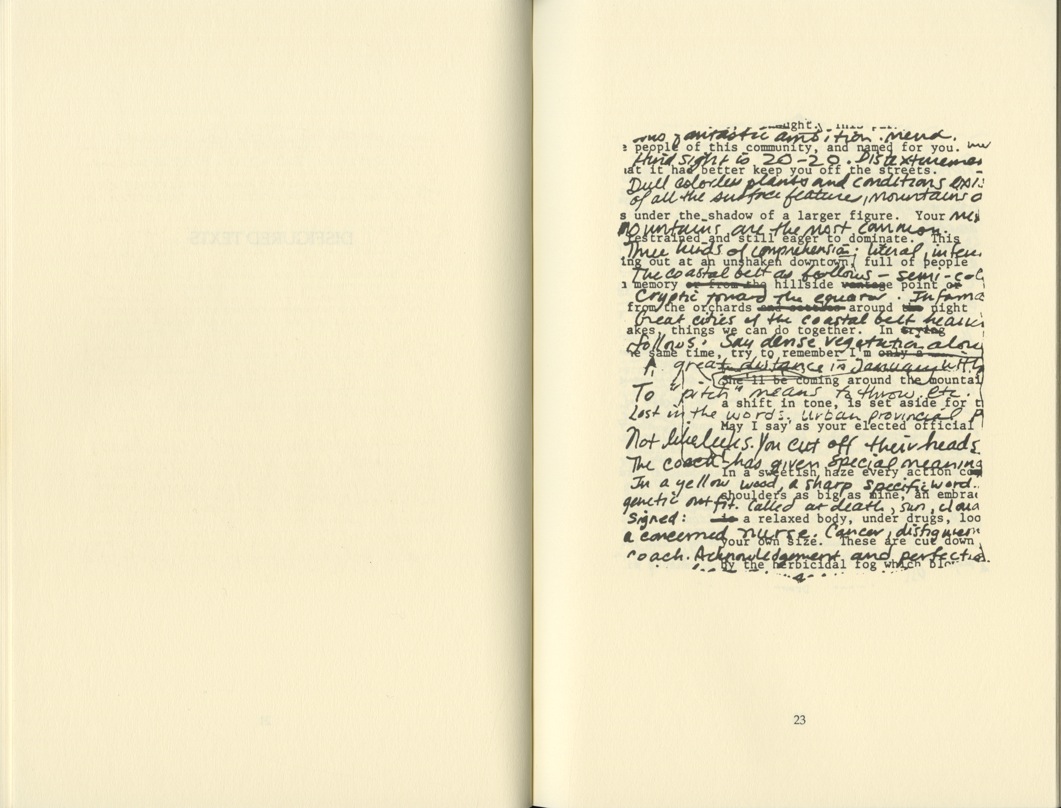 DISFIGURED TEXTS
ought.
fantastic ambition. Mend.
people of this community, and named for you.
Hind sight is 20-20.
at it had better keep you off the streets.
Dull colorless plants and conditions
of all the surface feature, mountains
s under the shadow of a larger figure. Your
mountains are the most common.
restrained and still eager to dominate. This
Three kinds of comprehension: literal,
ing out at an unshaken downtown, full of people
The coastal belt as follows – semi-
a memory or from the hillside vantage point or
Cryptic toward the equator.
from the orchards around the night
Great cities of the coastal belt
akes, things we can do together. In trying
follows: Say dense vegetation along
he same time, try to remember I'm only a
A great distance in January with
She'll be coming around the mountai
To "pitch" means to throw, etc.
a shift in tone, is set aside for t
Lost in the words. Urban provincial
May I say as your elected official
Not like leeks. You cut off their heads
The coach has given special meaning
In a sweetish haze every action
In a yellow wood, a sharp specific word.
shoulders as big as mine, an embra
genetic outfit. Called at death, sun,
Signed: is a relaxed body, under drugs, loo
a concerned nurse. Cancer,
your own size. These are cut down
coach. Acknowledgement and
by the herbicidal fog which
23